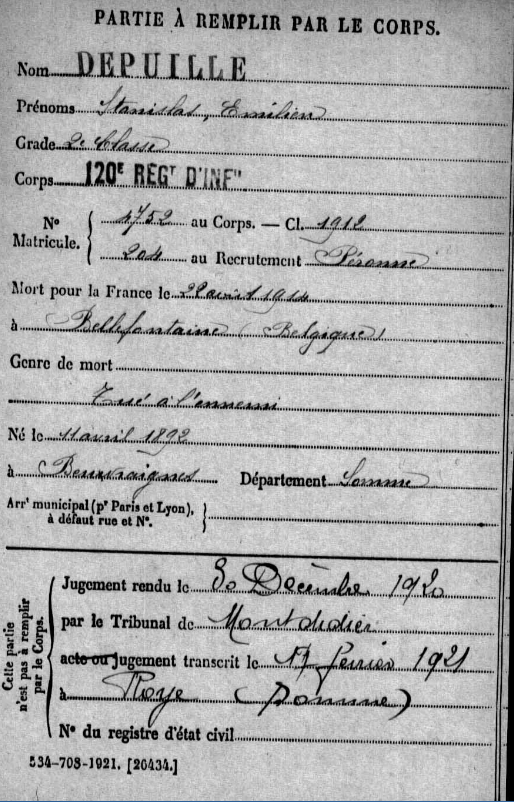 PARTIE À REMPLIR PAR LE CORPS.
Nom DEPUILLE
Prénoms Stanislas, Emilien
Grade 2e Classe
Corps 120E REGT D'INFie
No Matricule. 4752 au Corps. — Cl. 1912
204 au Recrutement Péronne
Mort pour la France le 22 août 1914
à Bellefontaine (Belgique)
Genre de mort
Tué à l'ennemi
Né le 11 avril 1892
à Beuvraignes Département Somme
Arrt municipal (pr Paris et Lyon), à défaut rue et No.
Cette partie n'est pas à remplir par le Corps.
Jugement rendu le 30 Décembre 1920
par le Tribunal de Montdidier
acte ou Jugement transcrit le 17 février 1921
à Roye (Somme)
No du registre d'état civil
534-708-1921. [26434.]